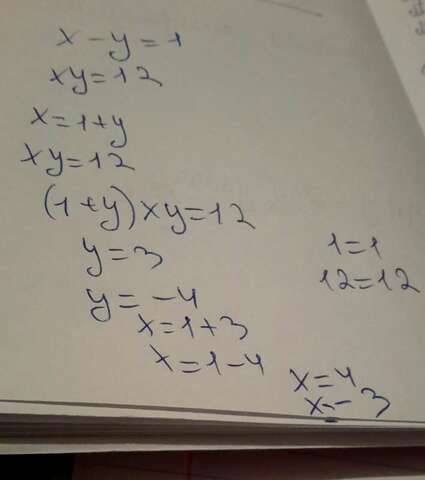 x - y = 1
xy = 12
x = 1 + y
xy = 12
(1 + y) xy = 12
y = 3
y = -4
x = 1 + 3
x = 1 - 4
1 = 1
12 = 12
x = 4
x = -3